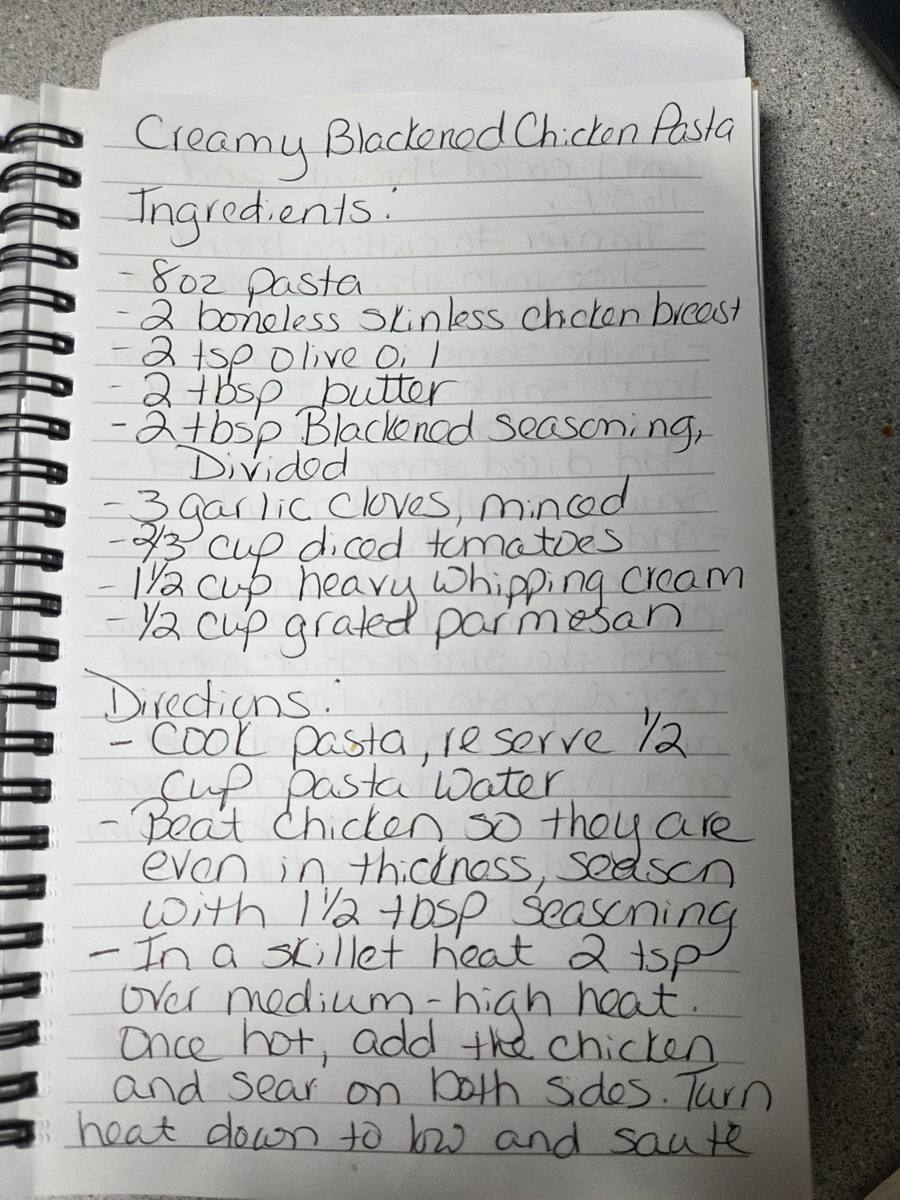 Creamy Blackened Chicken Pasta
Ingredients:
- 8oz pasta
- 2 boneless skinless chicken breast
- 2 tsp olive oil
- 2 tbsp butter
- 2 tbsp Blackened seasoning,
Divided
- 3 garlic cloves, minced
- 2/3 cup diced tomatoes
- 1 1/2 cup heavy whipping cream
- 1/2 cup grated parmesan
Directions:
- Cook pasta, reserve 1/2
cup pasta water
- Beat chicken so they are
even in thickness, season
with 1 1/2 tbsp seasoning
- In a skillet heat 2 tsp
over medium-high heat.
Once hot, add the chicken
and sear on both sides. Turn
heat down to low and saute